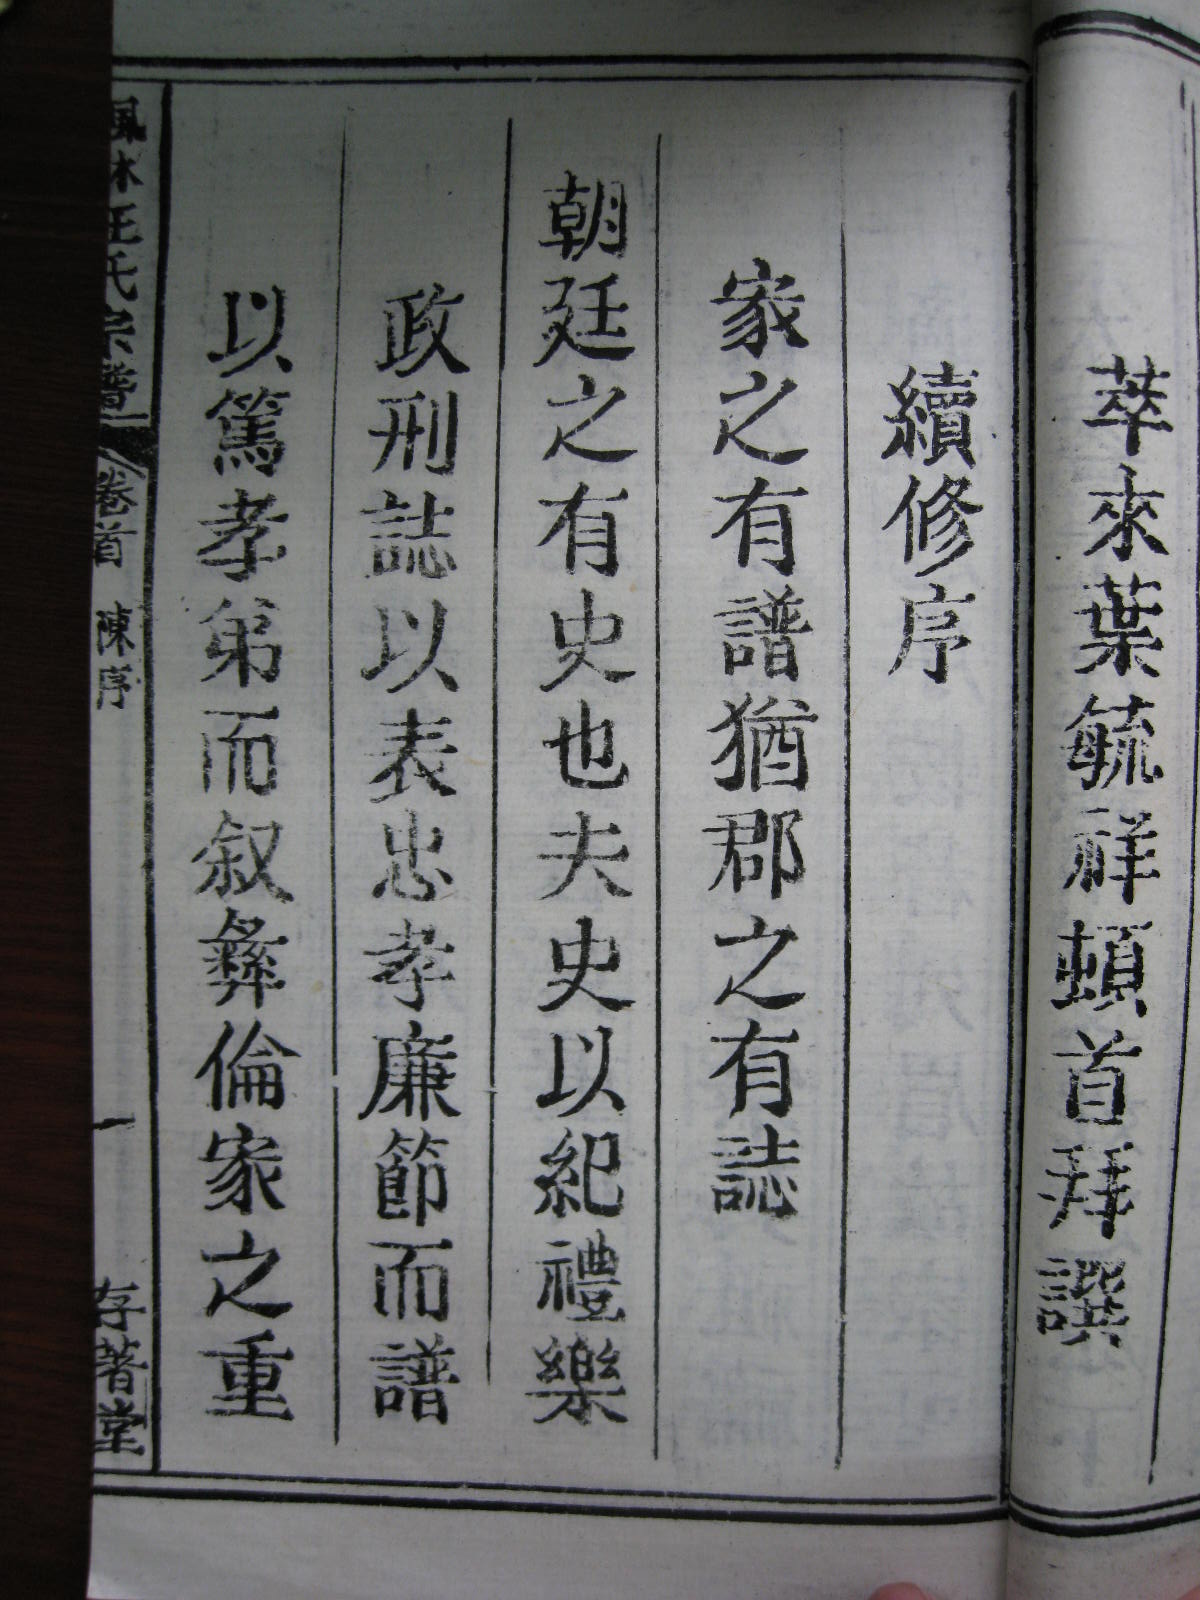 萃來葉毓祥頓首拜譔
續修序
家之有譜猶郡之有誌
朝廷之有史也夫史以紀禮樂
政刑誌以表忠孝廉節而譜
以篤孝弟而叙彝倫家之重
鳳林王氏宗譜
卷首
陳序
一
存著堂